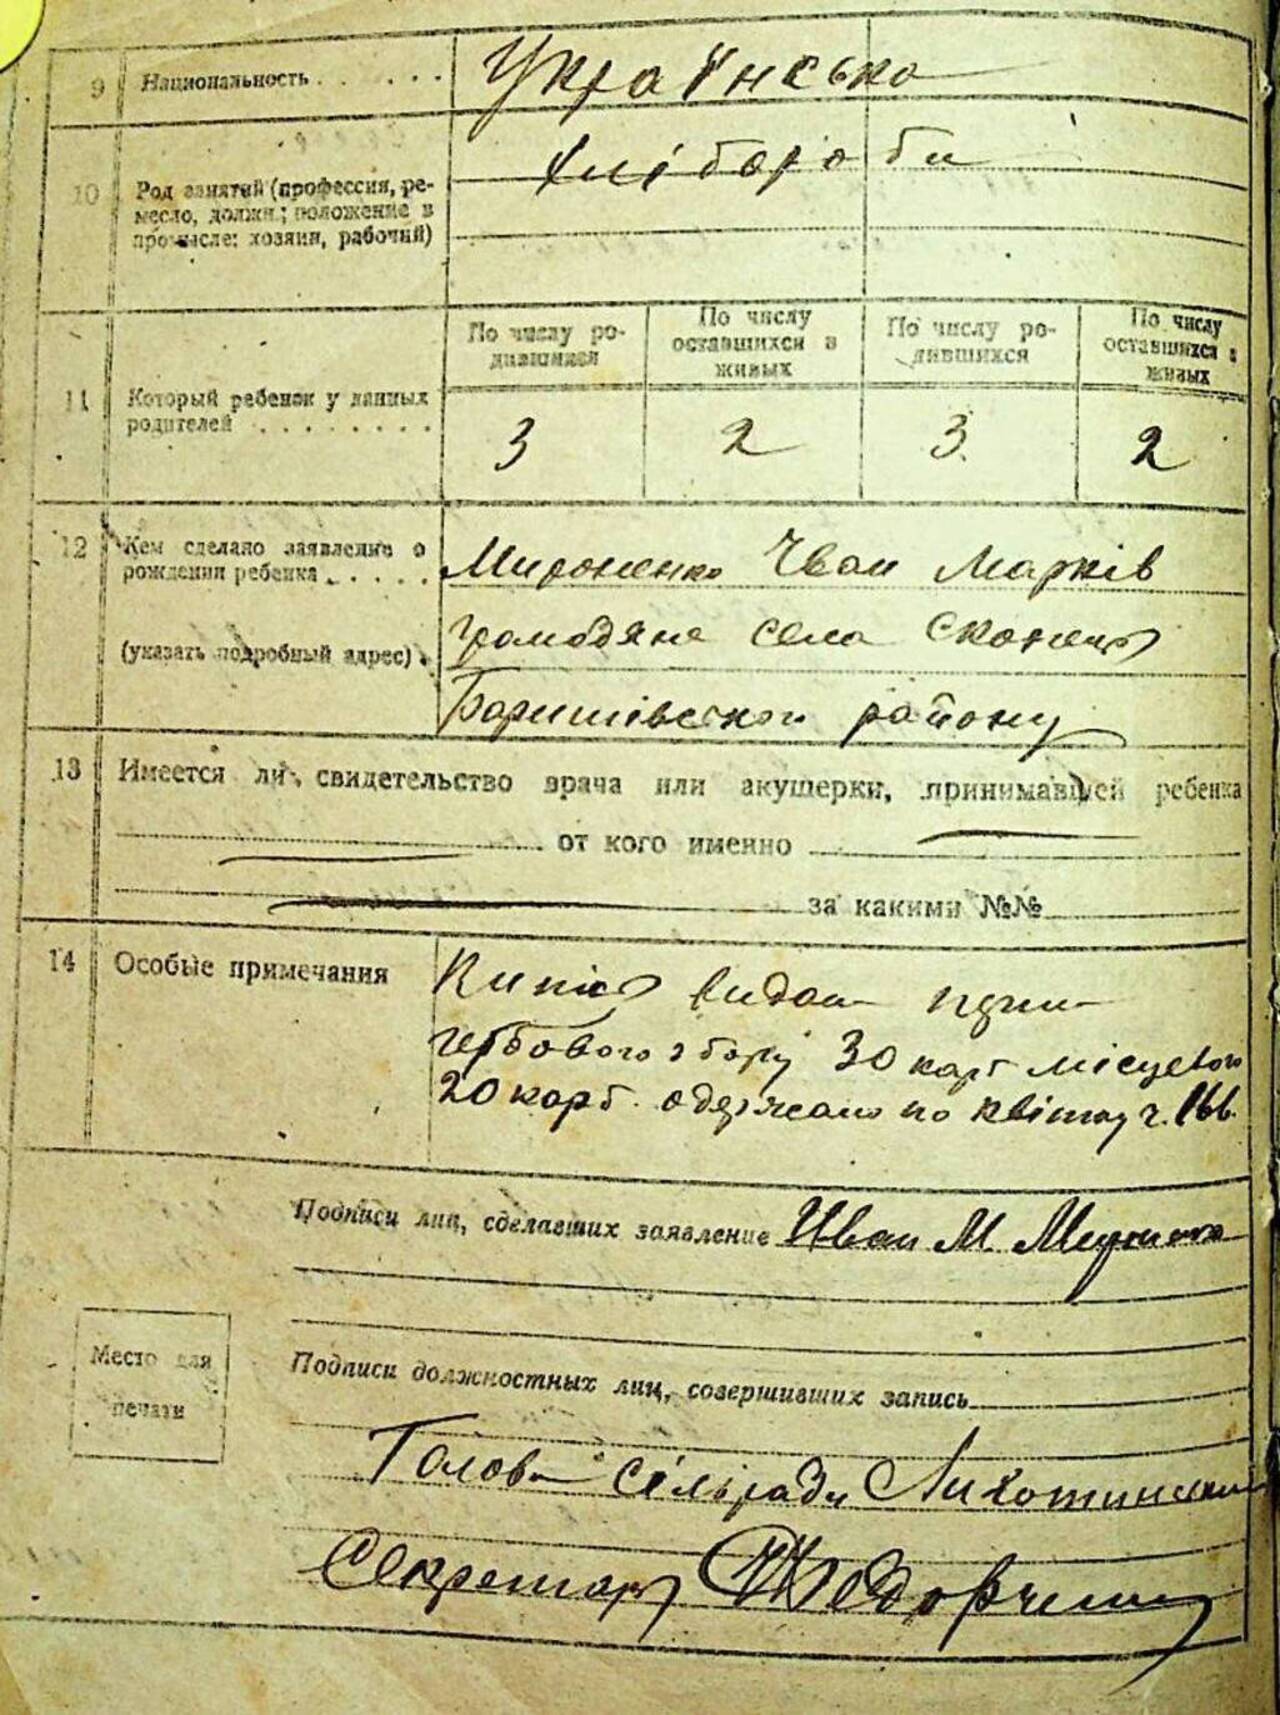 9 Национальность . . . . . . Українська
10 Род занятий (профессия, ре-
месло, должн.; положение в
промысле: хозяин, рабочий)
хлібороби
По числу ро-
дившихся
По числу
оставшихся в
живых
По числу ро-
дившихся
По числу
оставшихся в
живых
11 Который ребенок у данных
родителей . . . . . . . .
3 2 3 2
12 Кем сделано заявление о
рождении ребенка . . . . .
(указать подробный адрес) .
Мироненко Іван Марків
громодяне села
Баришівської району
13 Имеется ли свидетельство врача или акушерки, принимавшей ребенка
от кого именно
за какими №№
14 Особые примечания
видан
гербового збору 30 карб місцевого
20 карб. одержано по квітку ч. 166.
Подписи лиц, сделавших заявление Иван М.
Место для
печати
Подписи должностных лиц, совершивших запись
Голова сільради
Секретарь